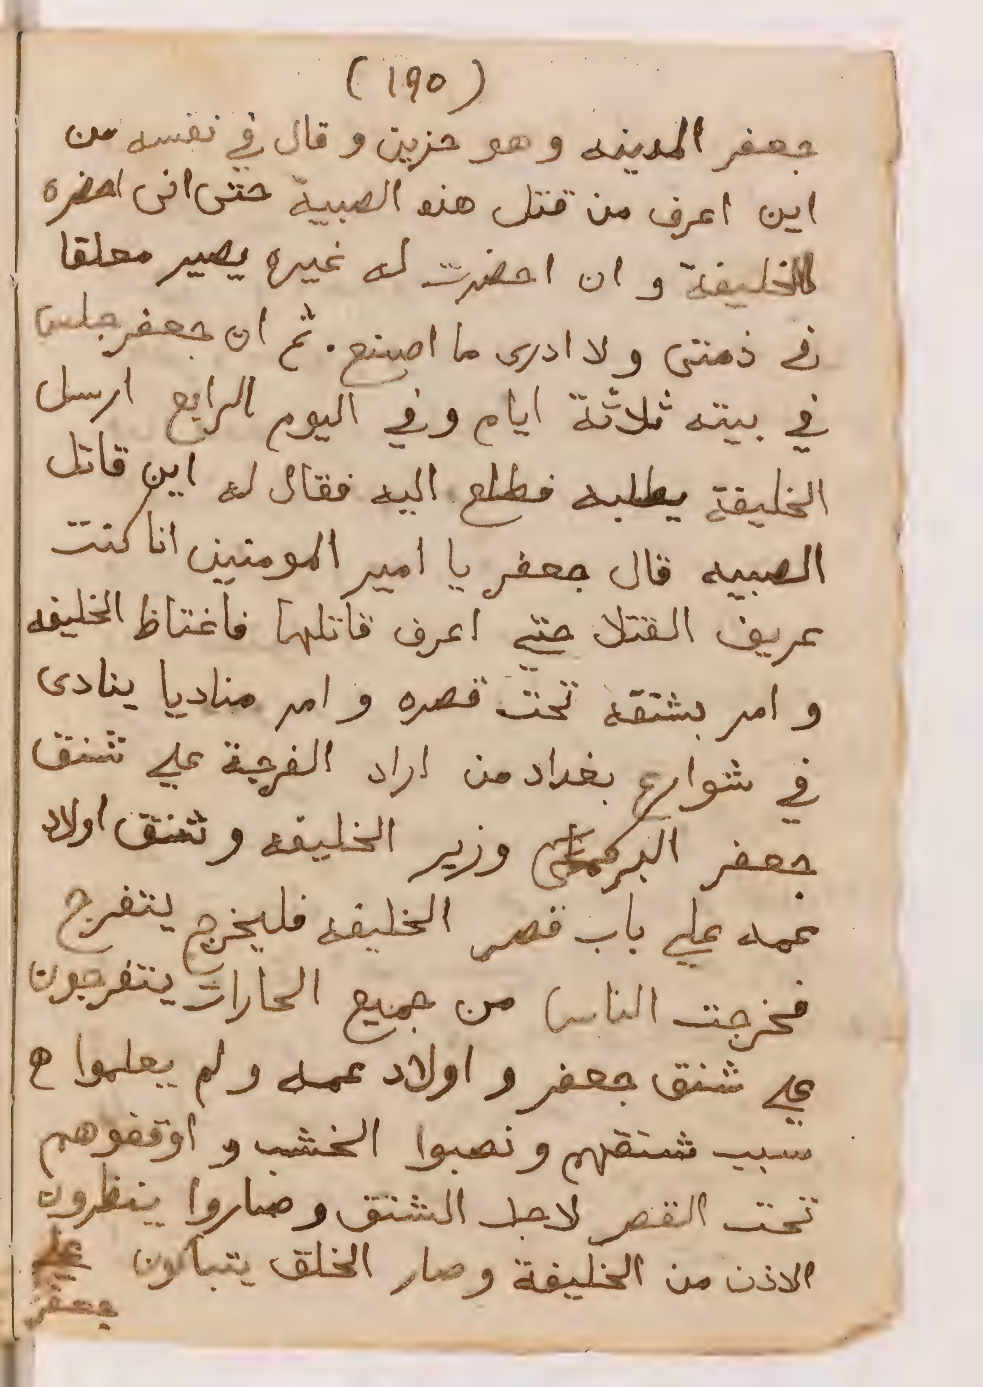 (١٩٥)
جعفر المدينه وهو حزين وقال في نفسه من
اين اعرف من قتل هذه الصبية حتى انى احضره
للخليفة و ان احضرت له غيره يصير معلقا
في ذمتى ولا ادرى ما اصنع . ثم ان جعفر جلس
في بيته ثلاثة ايام وفي اليوم الرابع ارسل
الخليفة يطلبه فطلع اليه فقال له اين قاتل
الصبيه قال جعفر يا امير المومنين انا كنت
عريف القتلا حتي اعرف قاتلها فاغتاظ الخليفه
و امر بشنقه تحت قصره و امر مناديا ينادى
في شوارع بغداد من اراد الفرجة علي شنق
جعفر البرمكي وزير الخليفه و شنق اولاد
عمه علي باب قصر الخليفه فليخرج يتفرج
فخرجت الناس من جميع الحارات يتفرجون
علي شنق جعفر و اولاد عمه ولم يعلموا ه
سبب شنقهم و نصبوا الخشب و اوقفوهم
تحت القصر لاجل الشنق وصاروا ينظرون
الاذن من الخليفة وصار الخلق يتباكون علي
جعفر